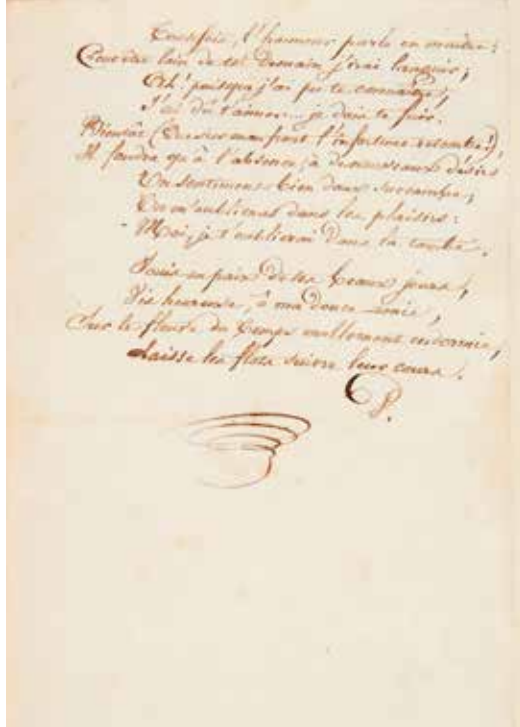 Toutefois, l'honneur parle en maître :
Pour être loin de toi demain j'irai languir ;
Ah ! puisque j'ai pu te connaître,
J'ai dû t'aimer... je dois te fuir.
Bientôt (Que sur mon front l'infortune retombe !),
Il faudra qu'à l'absence, à de nouveaux désirs
Un sentiment bien doux succombe ;
Tu m'oublieras dans les plaisirs :
Moi, je t'oublierai dans la tombe.
Jouis en paix de tes beaux jours,
Vis heureuse, ô ma douce amie,
Sur le fleuve du temps mollement endormie,
Laisse les flots suivre leur cours.
P.